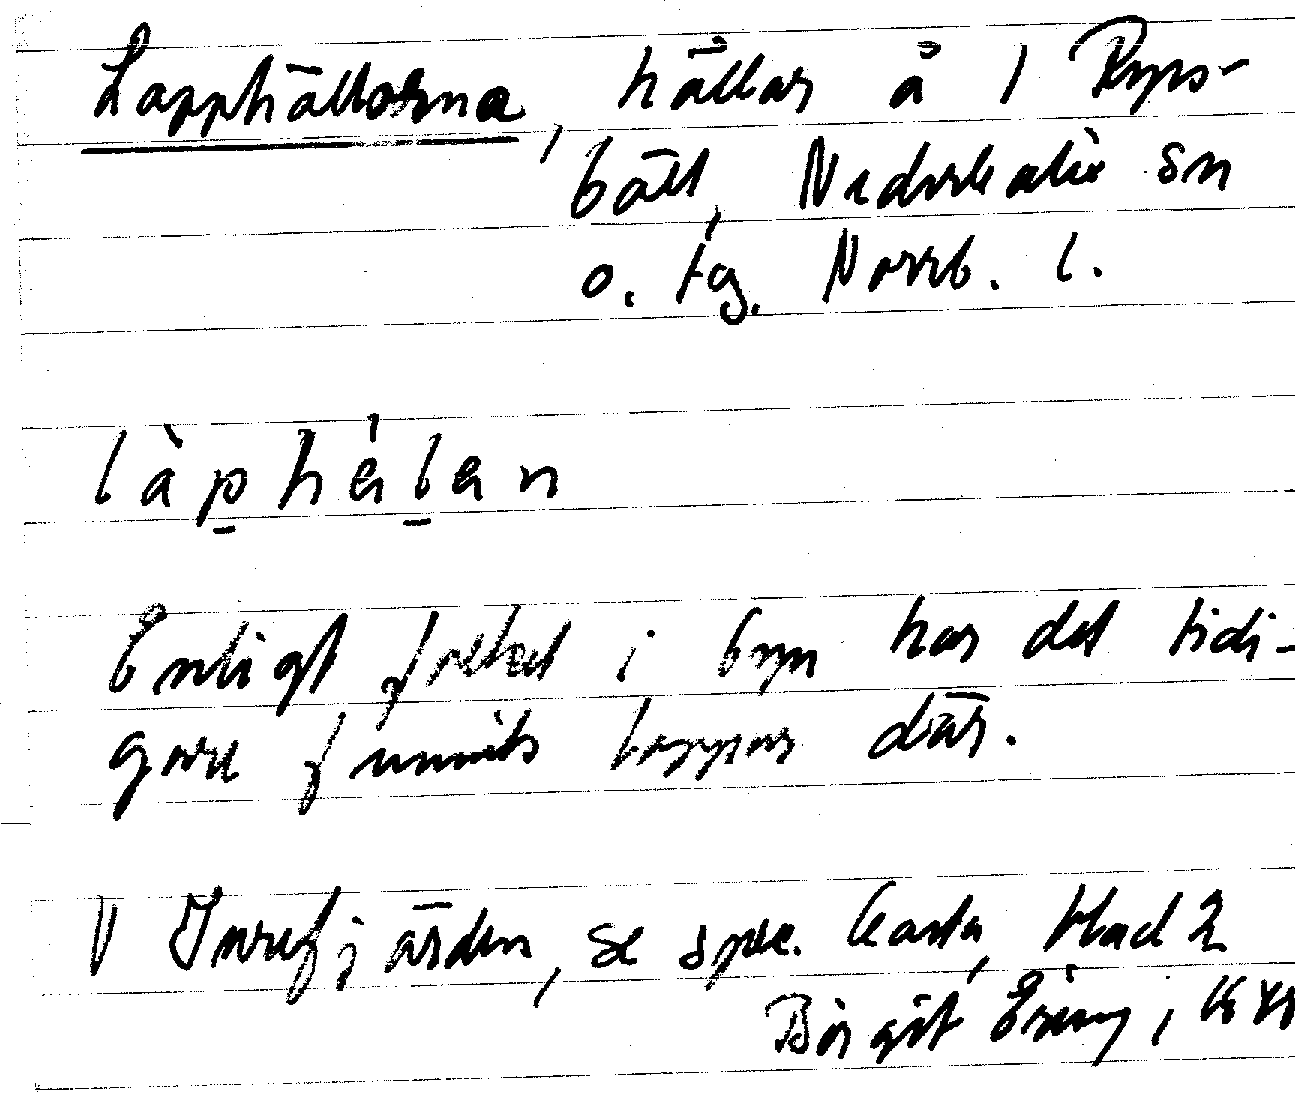 Lapphällorna, hällar å 1 Ryss-
bält, Nederkalix sn
o. tg. Norrb. l.
làphálan
Enligt folket i byn har det tidi-
gare funnits lappar där.
V Inrefjärden, se spec. karta, blad 2
Birgit